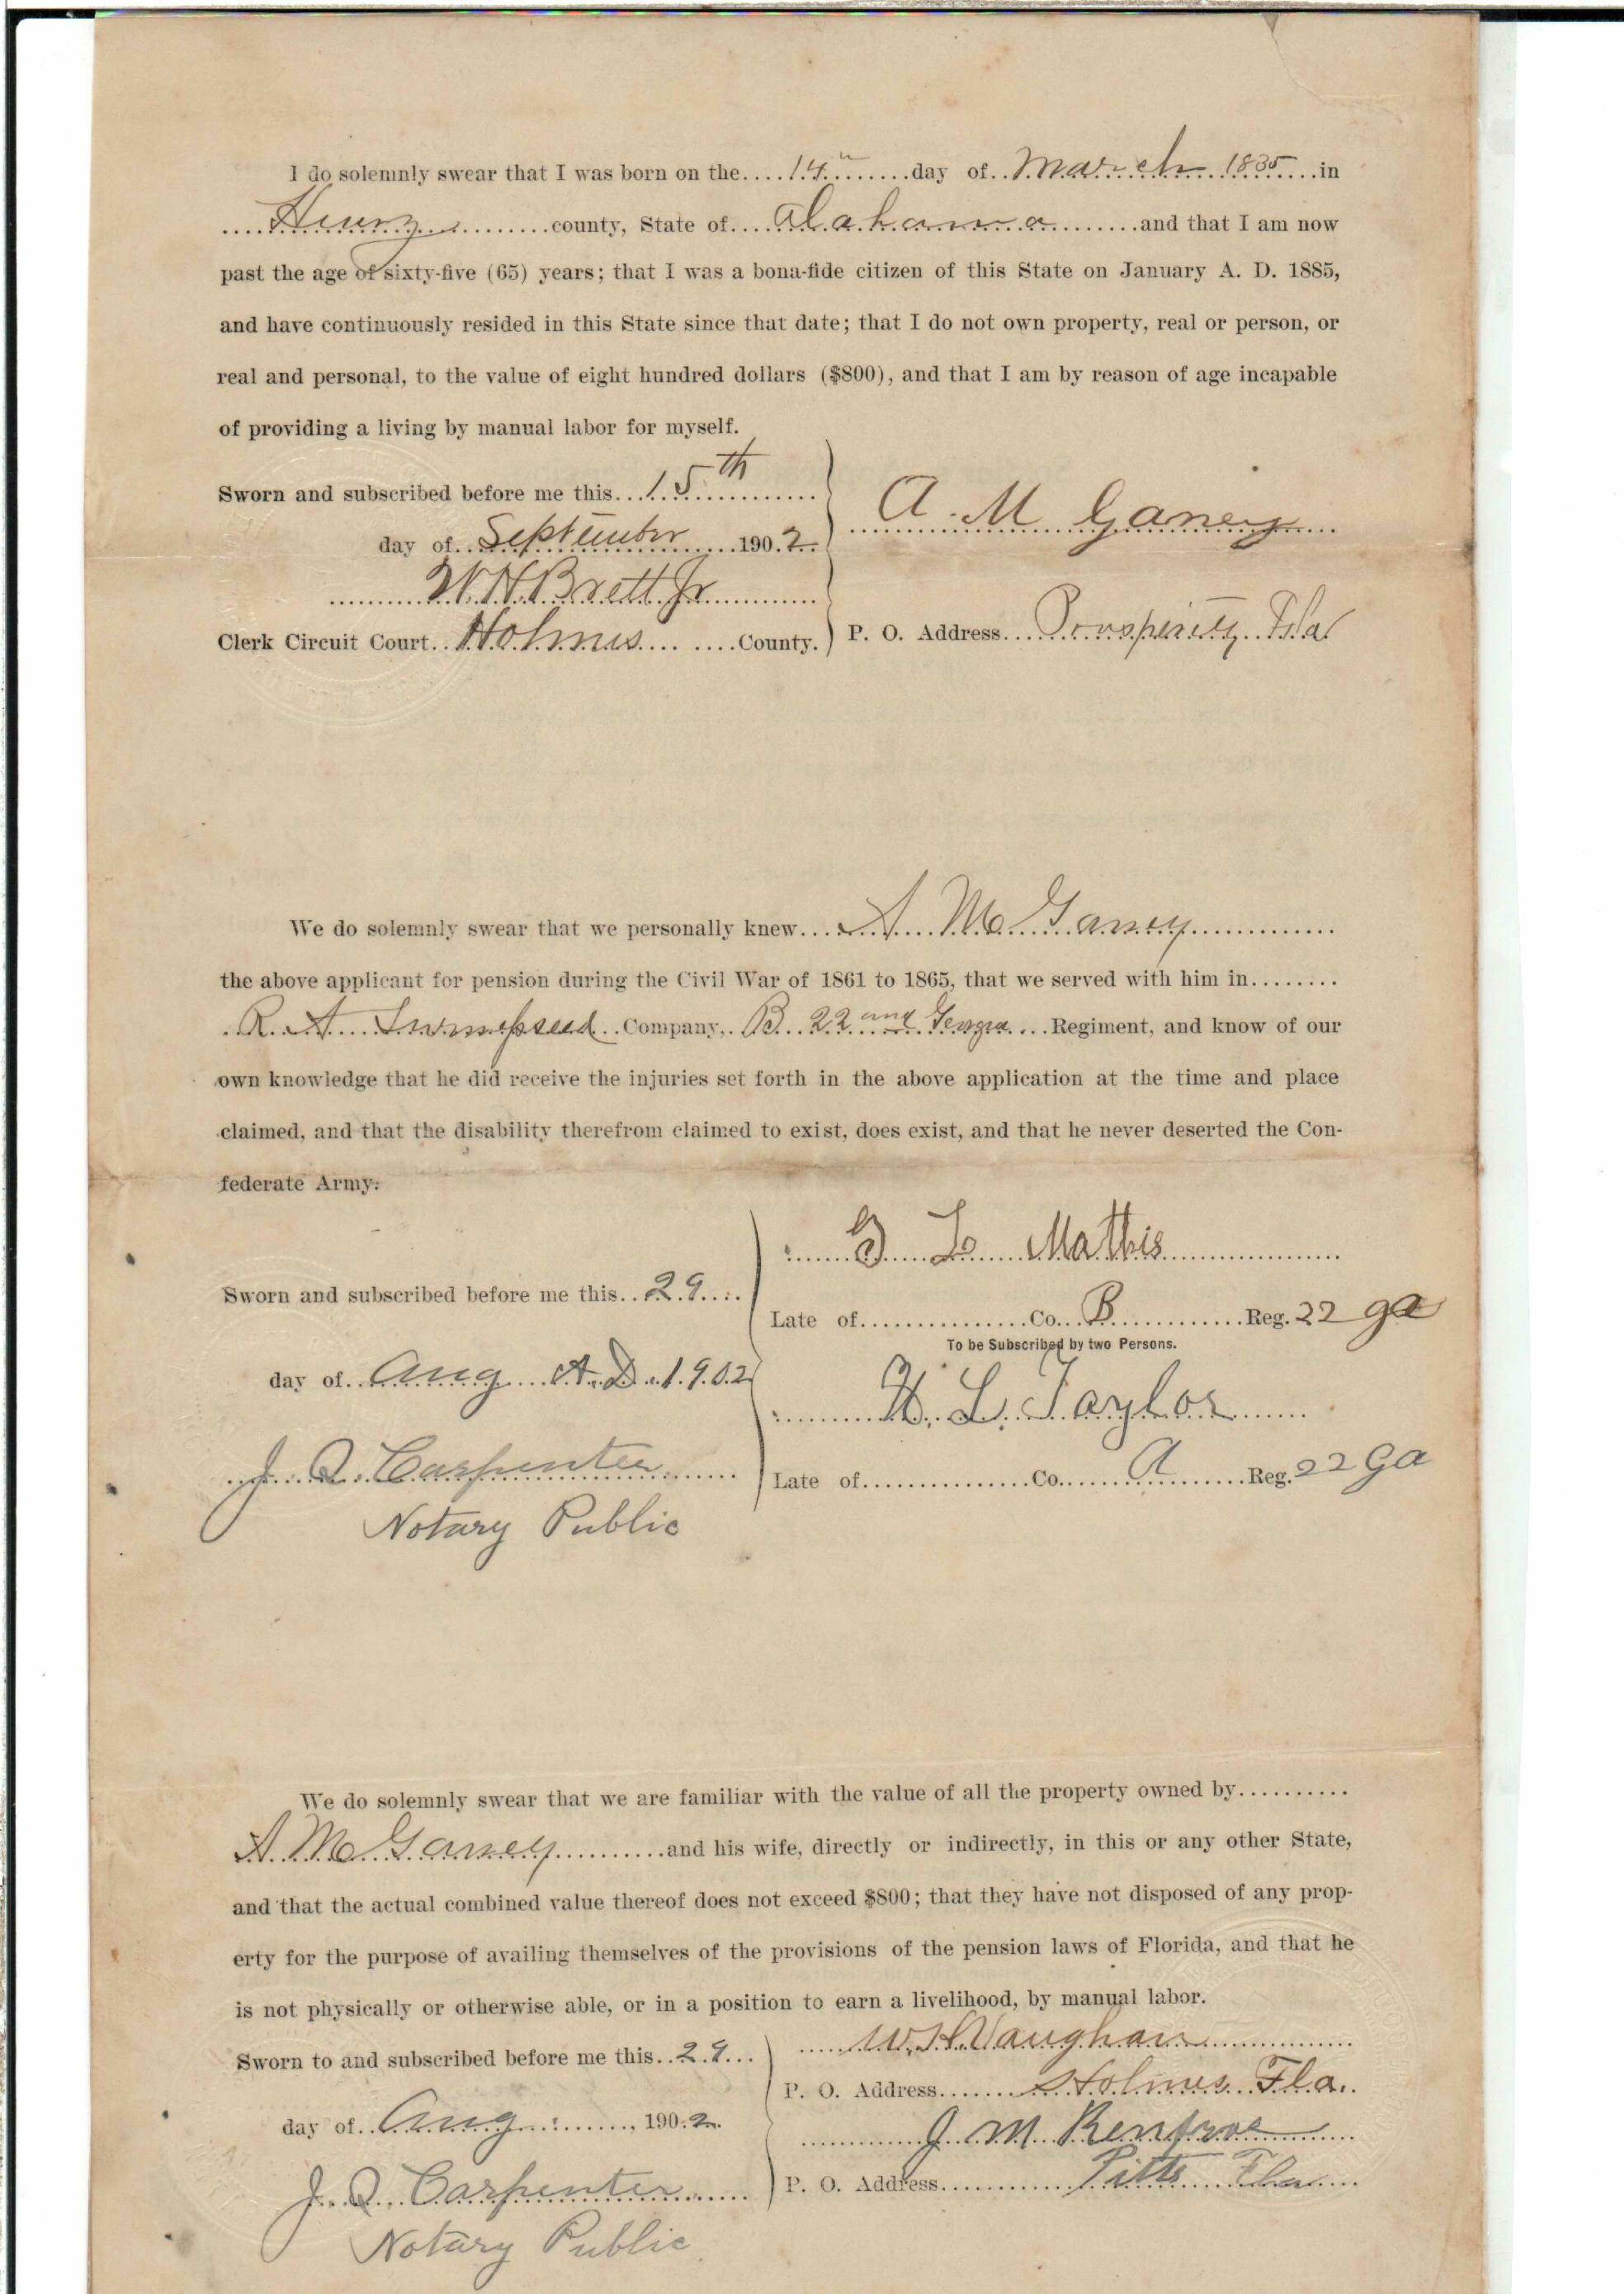 I do solemnly swear that I was born on the....14th.......day of..March..1835....in
....Henry..........county, State of....Alabama.........and that I am now
past the age of sixty-five (65) years; that I was a bona-fide citizen of this State on January A. D. 1885,
and have continuously resided in this State since that date; that I do not own property, real or person, or
real and personal, to the value of eight hundred dollars ($800), and that I am by reason of age incapable
of providing a living by manual labor for myself.
Sworn and subscribed before me this...15th..........
day of..September......190.2..
A. M Ganey
W. H. Brett Jr
Clerk Circuit Court..Holmes.... ....County.
P. O. Address...Prosperity, Fla
We do solemnly swear that we personally knew....A. M. Ganey..............
the above applicant for pension during the Civil War of 1861 to 1865, that we served with him in........
R. A. Company, B. 22 and Georgia....Regiment, and know of our
own knowledge that he did receive the injuries set forth in the above application at the time and place
claimed, and that the disability therefrom claimed to exist, does exist, and that he never deserted the Con-
federate Army.
L. Mathis
Sworn and subscribed before me this..29....
Late of................Co...B.............Reg. 22 ga
To be Subscribed by two Persons.
day of..Aug A.D. 1902
L. Taylor
J. Q. Carpenter
Late of................Co......A........Reg. 22 Ga
Notary Public
We do solemnly swear that we are familiar with the value of all the property owned by..........
A. M. Ganey..........and his wife, directly or indirectly, in this or any other State,
and that the actual combined value thereof does not exceed $800; that they have not disposed of any prop-
erty for the purpose of availing themselves of the provisions of the pension laws of Florida, and that he
is not physically or otherwise able, or in a position to earn a livelihood, by manual labor.
W. H. Vaughan
Sworn to and subscribed before me this..29...
P. O. Address.......Holmes Fla..
day of..Aug........, 190.2.
J. M. Renfroe
J. Q. Carpenter
P. O. Address............Pitts Fla....
Notary Public